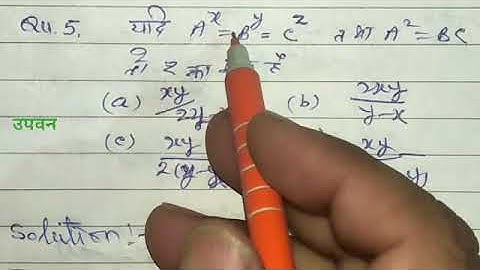 Qu. 5. यदि A^x = B^y = C^z तथा A^2 = BC
तो z का है
(a) xy/2y (b) 2xy/y-x
उपवन
(c) xy/2(y- xy/ y)
Solution:-